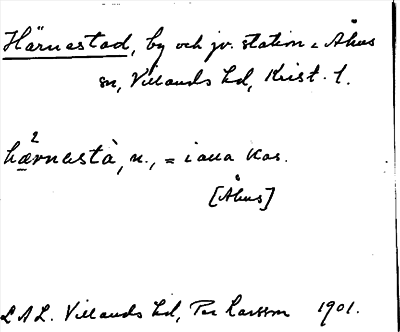 Härnestad, by och jv. station i Åhus
sn, Villands hd, Krist. l.
hæ²rnestà, n., = i alla kas.
[Åhus]
LAL. Villands hd, Per Larsson 1901.